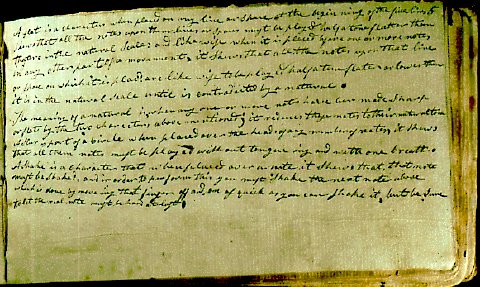 A flat is a character when placed on any line or space at the beginning of the five lines
shews that all the notes upon that line or space must be played half a tone flater than
they are in the natural scale: and likewise when it is placed before one or more notes
in any other part of a movement it shews that all the notes upon that line
or space on which it is placed are likewise to be played half a tone flater or lower than
it is in the natural scale until is contradicted by a natural.
The meaning of a natural is when any one or more notes have been made sharp
or flat by the two characters above mentioned it reduces those notes to their natural tone
A slur is part of a circle when placed over the heads of any number of notes, it shews
that all them notes must be played without tongueing and with one breath.
A Shake is a character that when placed over a note it shews that that note
must be shaked: and in order to perform this you must shake the next note above
which is done by moving that finger of and on as quick as you can shake it, but be sure
to let the note must be heard